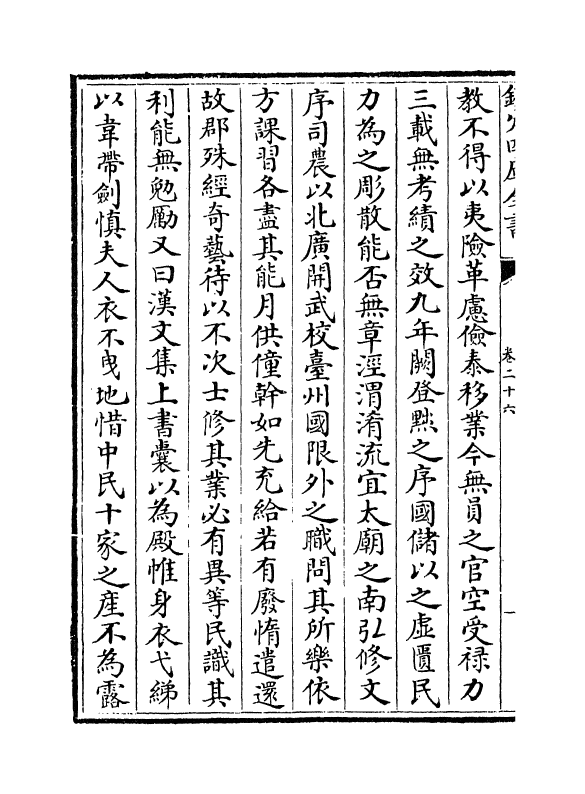 欽定四庫全書
卷二十六
一
教不得以夷險革慮儉泰移業今無員之官空受禄力
三載無考績之效九年闕登黜之序國儲以之虚匱民
力為之彫散能否無章涇渭淆流宜太廟之南弘修文
序司農以北廣開武校臺州國限外之職問其所樂依
方課習各盡其能月供僮幹如先充給若有廢惰遣還
故郡殊經奇藝待以不次士修其業必有異等民識其
利能無勉勵又曰漢文集上書囊以為殿帷身衣弋綈
以韋帶劍慎夫人衣不曳地惜中民十家之産不為露